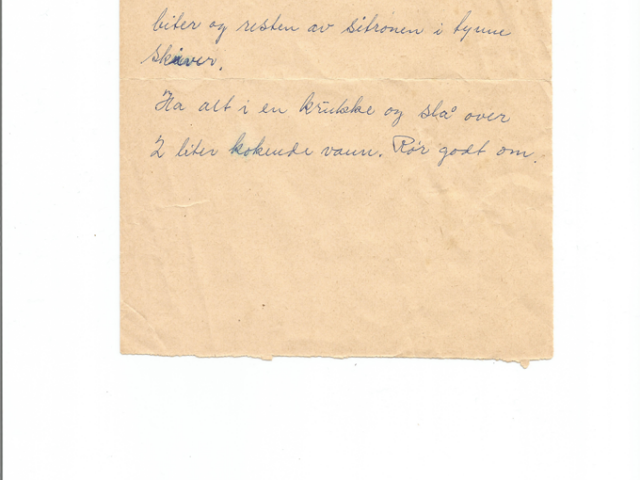 biter og resten av sitronen i tynne
skiver.
Ha alt i en krukke og slå over
2 liter kokende vann. Rør godt om.